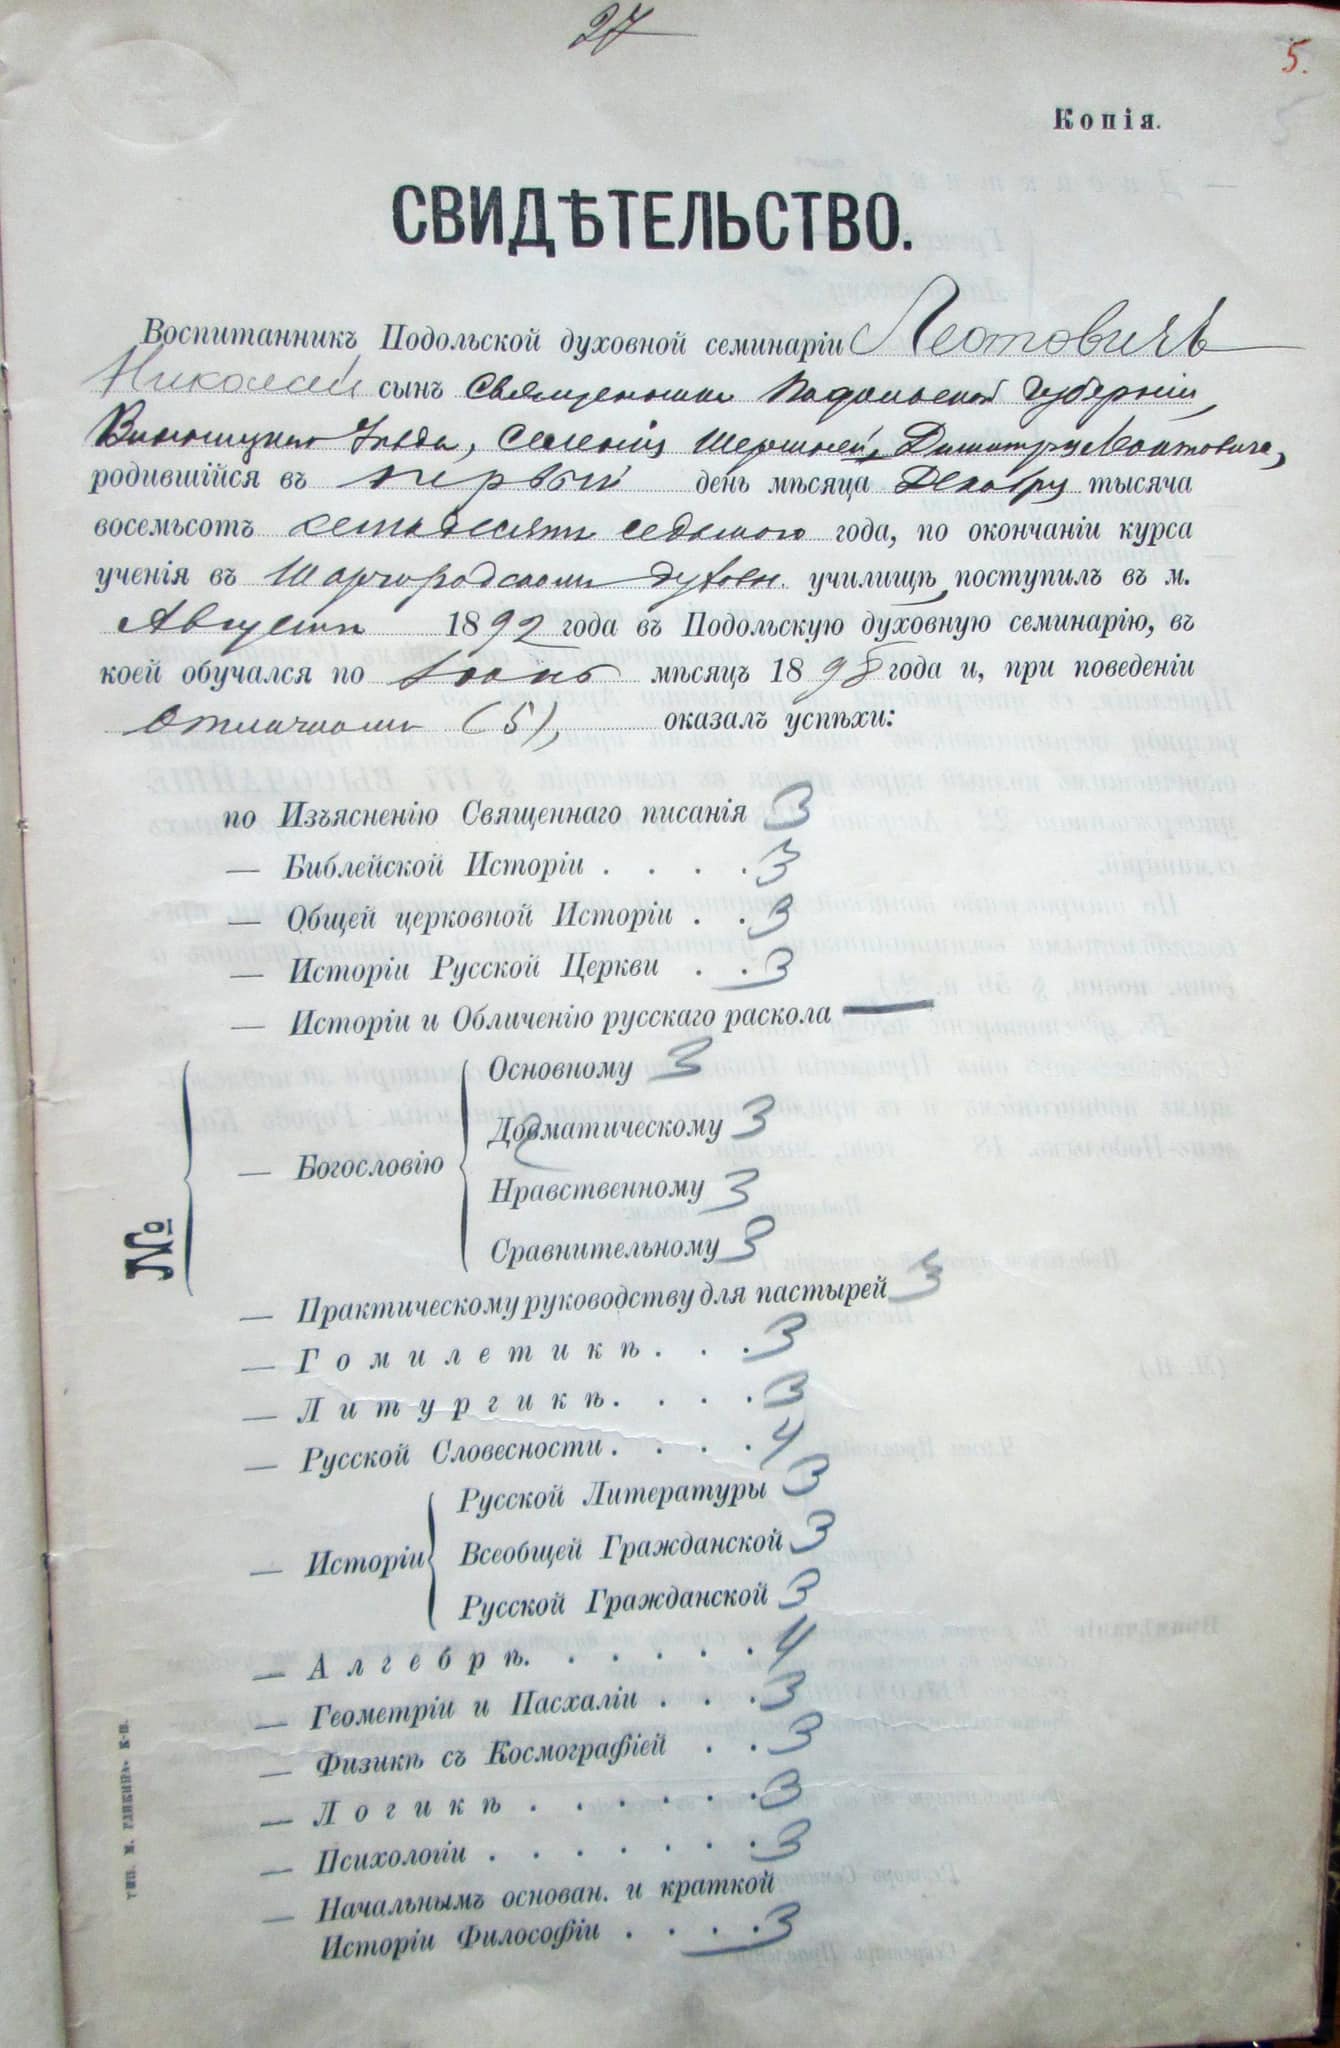 27
5.
Копія.
СВИДѢТЕЛЬСТВО.
Воспитанникъ Подольской духовной семинаріи Леотовичъ
Николай сынъ Священника Подольской Губерніи,
Винницкаго Уѣзда, Селенія Шершней, Димитрія Леонтовича,
родившійся въ первый день мѣсяца Декабря тысяча
восемьсотъ семьдесятъ седьмого года, по окончаніи курса
ученія въ Шаргородскомъ духовн. училищѣ, поступилъ въ м.
Августѣ 1892 года въ Подольскую духовную семинарію, въ
коей обучался по Іюнь мѣсяцъ 1898 года и, при поведеніи
отличномъ (5), оказалъ успѣхи:
по Изъясненію Священнаго писанія 3
— Библейской Исторіи . . . . 3
— Общей церковной Исторіи . . 3
— Исторіи Русской Церкви . . 3
— Исторіи и Обличенію русскаго раскола —
№
— Богословію
Основному 3
Догматическому 3
Нравственному 3
Сравнительному 3
— Практическому руководству для пастырей 3
— Гомилетикѣ . . . 3
— Литургикѣ. . . . 3
— Русской Словесности. . . . 4
— Исторіи
Русской Литературы 3
Всеобщей Гражданской 3
Русской Гражданской 3
— Алгебрѣ. . . . . . 4
— Геометріи и Пасхаліи . . . 3
— Физикѣ съ Космографіей . . 3
— Логикѣ . . . . . . 3
— Психологіи . . . . . . 3
— Начальнымъ основан. и краткой
Исторіи Философіи . . . . 3
тип. М. Гликина. К-Ш.